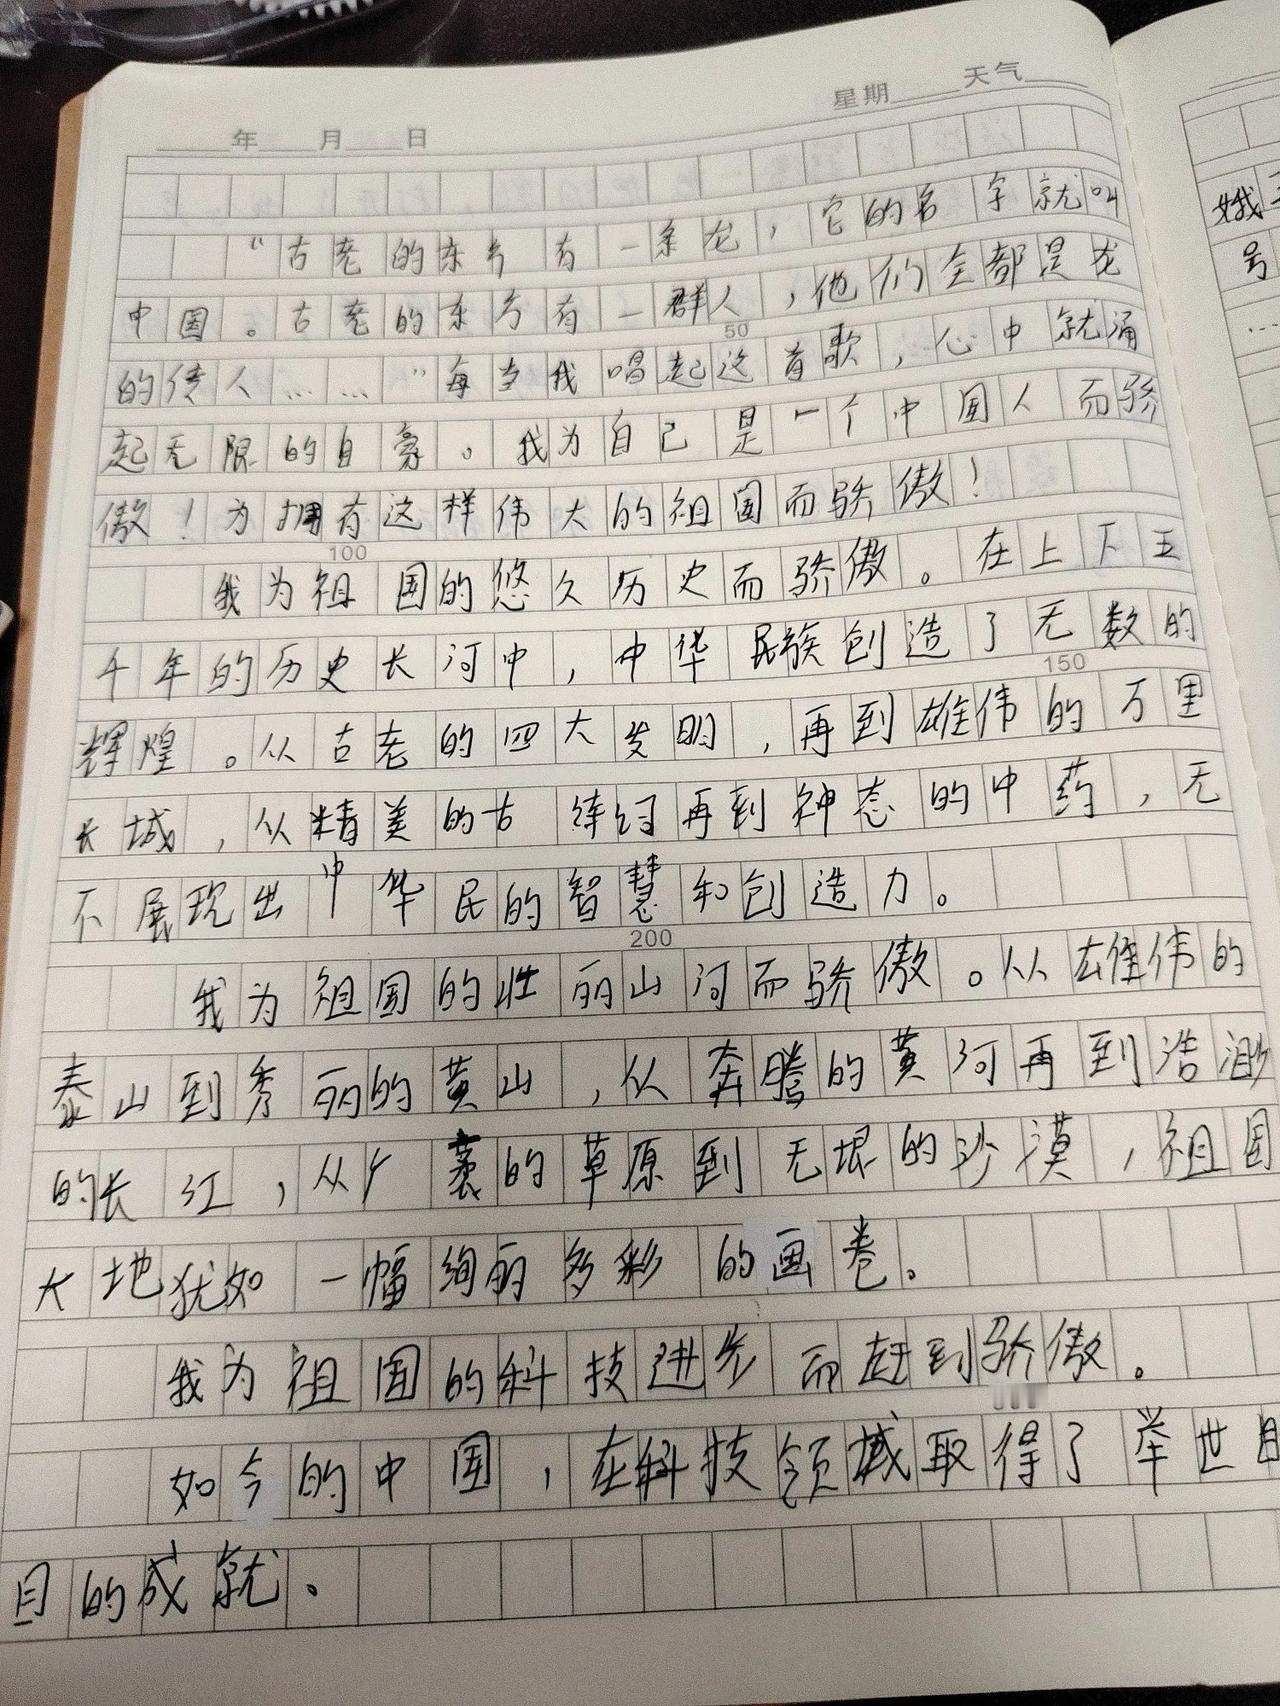 年 月 日 星期 天气
“古老的东方有一条龙，它的名字就叫
中国。古老的东方有一群人，他们全都是龙
50
的传人……”每当我唱起这首歌，心中就涌
起无限的自豪。我为自己是一个中国人而骄
傲！为拥有这样伟大的祖国而骄傲！
100
我为祖国的悠久历史而骄傲。在上下五
千年的历史长河中，中华民族创造了无数的
150
辉煌。从古老的四大发明，再到雄伟的万里
长城，从精美的古 再到神态的中药，无
不展现出中华民的智慧和创造力。
200
我为祖国的壮丽山河而骄傲。从雄伟的
泰山到秀丽的黄山，从奔腾的黄河再到浩渺
的长江，从广袤的草原到无垠的沙漠，祖国
大地犹如一幅绚丽多彩的画卷。
我为祖国的科技进步而赶到骄傲。
如今的中国，在科技领域取得了举世目
目的成就。
娥
号
…